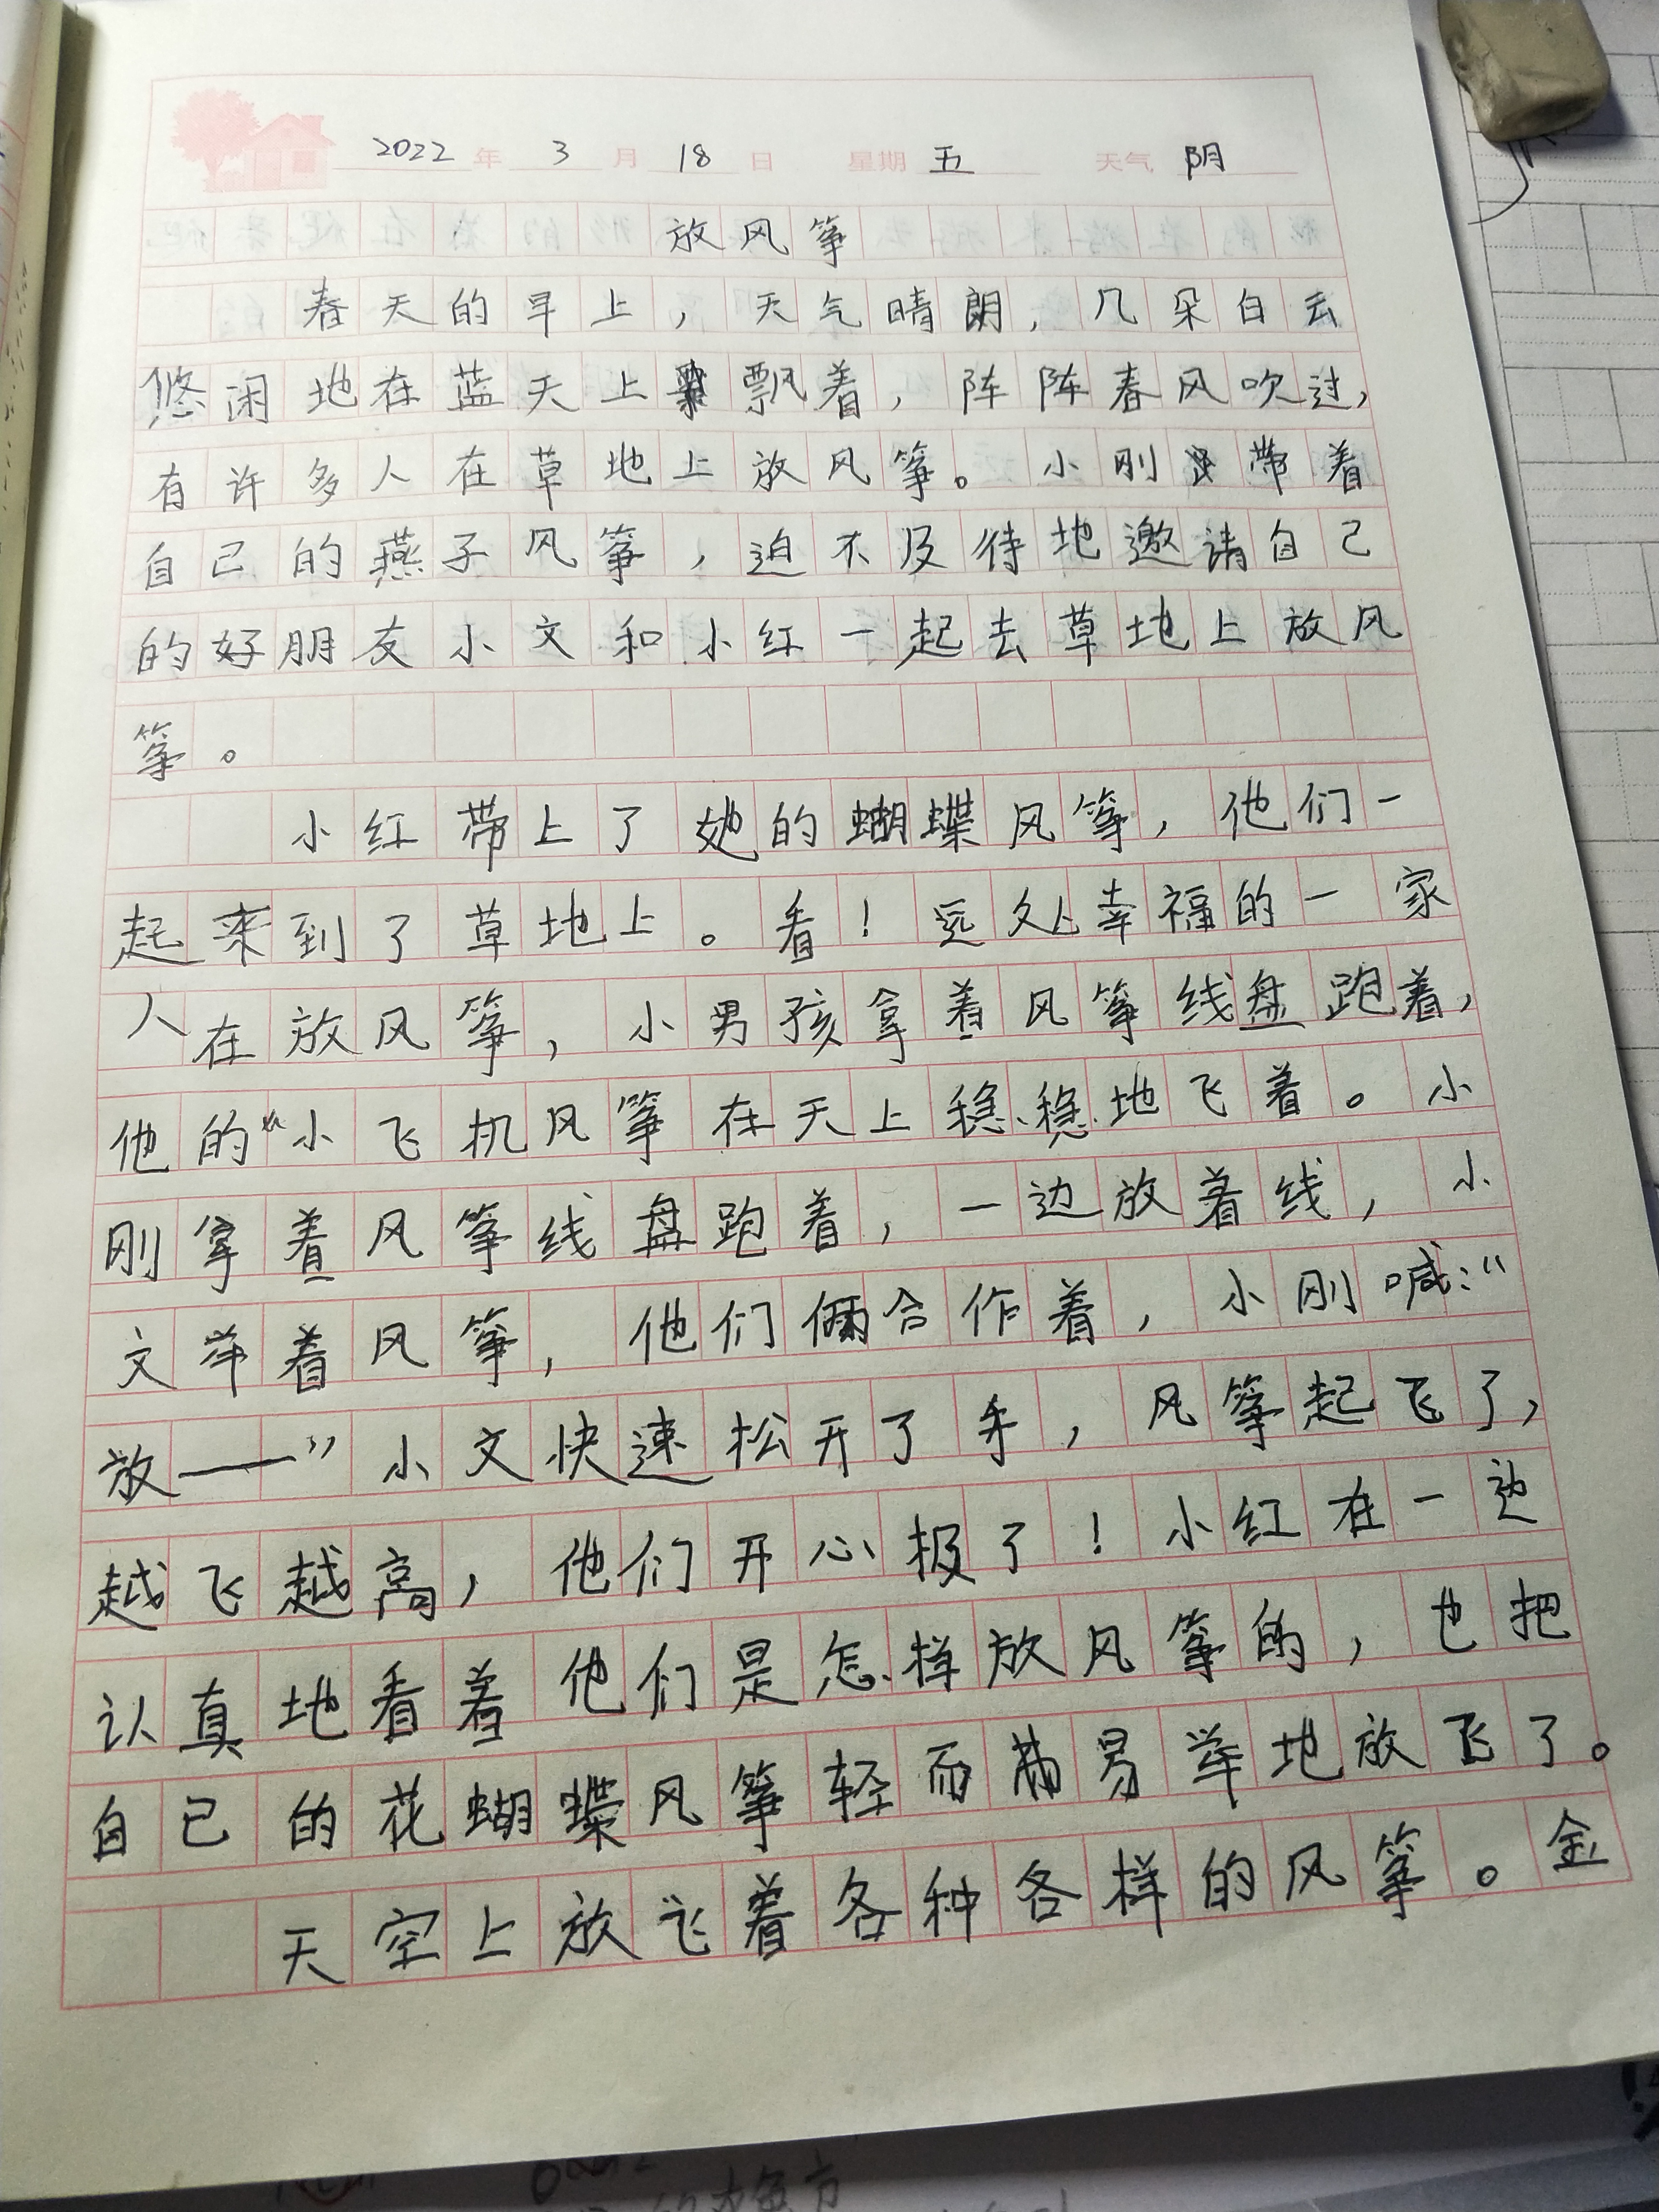 2022年 3月 18日 星期 五 天气 阴
放风筝
春天的早上，天气晴朗，几朵白云
悠闲地在蓝天上飘着，阵阵春风吹过，
有许多人在草地上放风筝。小刚带着
自己的燕子风筝，迫不及待地邀请自己
的好朋友小文和小红一起去草地上放风
筝。
小红带上了她的蝴蝶风筝，他们一
起来到了草地上。看！远处幸福的一家
人在放风筝，小男孩拿着风筝线盘跑着，
他的“小飞机风筝在天上稳稳地飞着。小
刚拿着风筝线盘跑着，一边放着线，小
文举着风筝，他们俩合作着，小刚喊：“
放——”小文快速松开了手，风筝起飞了，
越飞越高，他们开心极了！小红在一边
认真地看着他们是怎样放风筝的，也把
自己的花蝴蝶风筝轻而易举地放飞了。
天空上放飞着各种各样的风筝。金